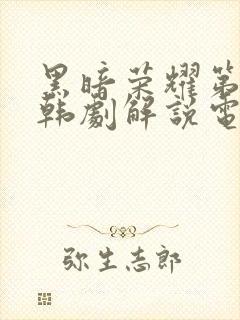 黑暗荣耀第
韩劇解説電
弥生志郎